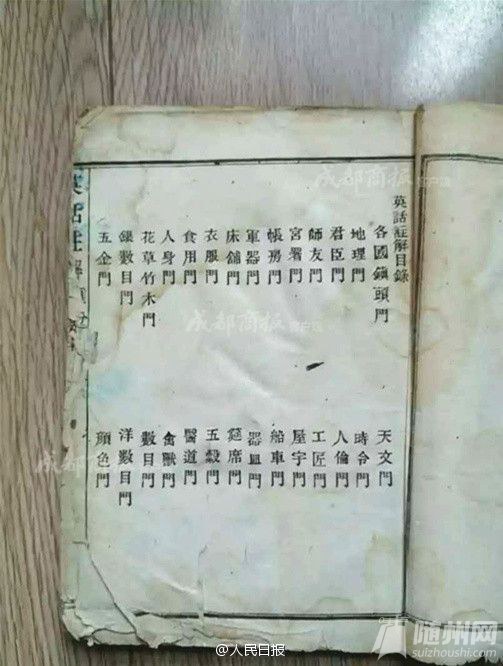 英話註解目錄
各國鎮頭門 天文門
地理門 時令門
君臣門 人倫門
師友門 工匠門
宮署門 屋宇門
帳房門 船車門
軍器門 器皿門
床舖門 筵席門
衣服門 五穀門
食用門 醫道門
人身門 禽獸門
花草竹木門 數目門
銀數目門 洋數目門
五金門 顏色門
英話註解
成都商报
成都商报 客户端
成都商报
@人民日报
随州网
suizhoushi.com